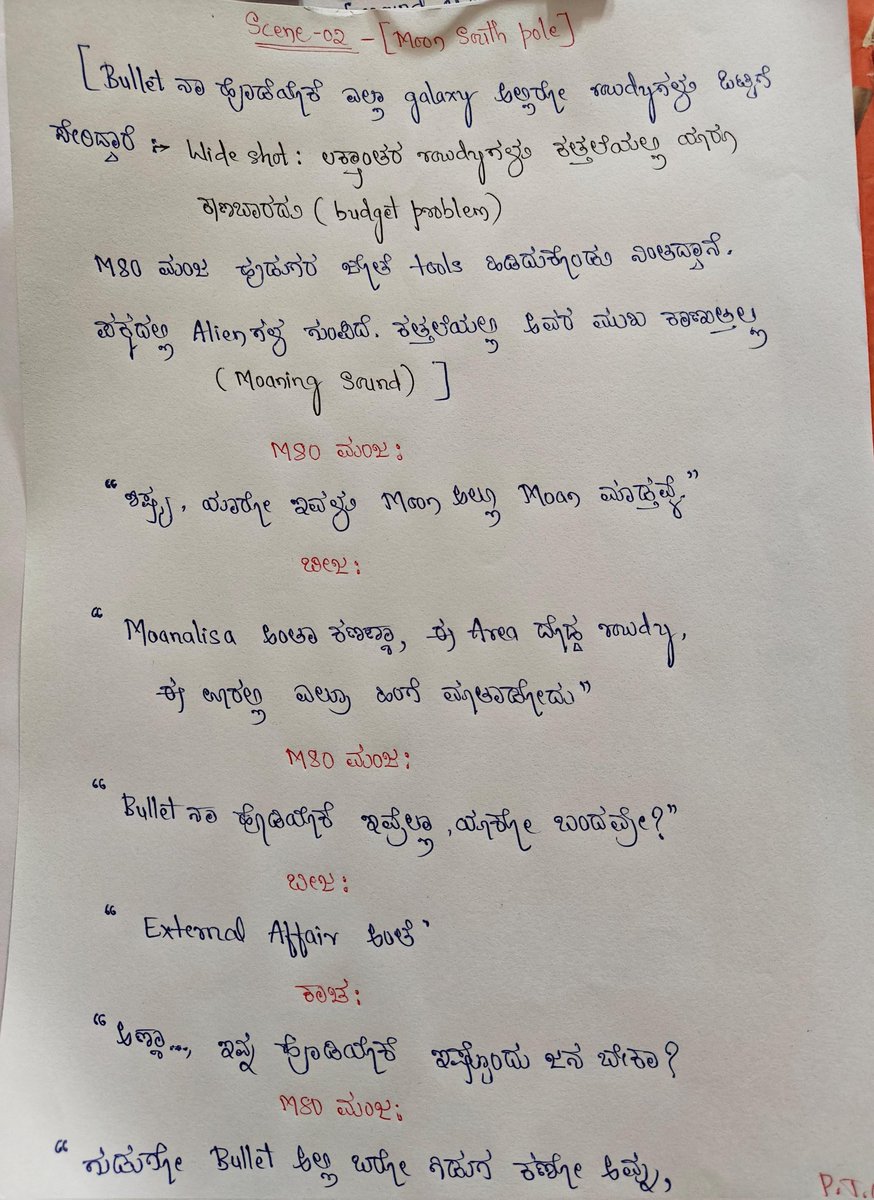 Scene-02 - [Moon South pole]
[Bullet ನಾ ಹೊಡೆಯೋಕೆ ಎಲ್ಲಾ galaxy ಅಲ್ಲಿರೋ rowdyಗಳು ಒಟ್ಟಿಗೆ
ಸೇರಿದ್ದಾರೆ :- Wide shot: ಲಕ್ಷಾಂತರ rowdyಗಳು ಕತ್ತಲೆಯಲ್ಲಿ ಯಾರೂ
ಕಾಣಬಾರದು (budget problem)
M80 ಮಂಜ ಹುಡುಗರ ಜೊತೆ tools ಹಿಡಿದುಕೊಂಡು ನಿಂತಿದ್ದಾನೆ.
ಪಕ್ಕದಲ್ಲಿ Alienಗಳ ಗುಂಪಿದೆ. ಕತ್ತಲೆಯಲ್ಲಿ ಅವರ ಮುಖ ಕಾಣುತ್ತಿಲ್ಲ
(Moaning Sound)]
M80 ಮಂಜ:
"ಶಿಷ್ಯ, ಯಾರೋ ಇವಳು Moon ಅಲ್ಲೂ Moan ಮಾಡ್ತವ್ಳೆ."
ಬೀಜ:
"Moanalisa ಅಂತಾ ಕಣಣ್ಣಾ, ಈ Area ದೊಡ್ಡ rowdy,
ಈ ಊರಲ್ಲಿ ಎಲ್ರೂ ಹಿಂಗೆ ಮಾತಾಡೋದು"
M80 ಮಂಜ:
"Bullet ನಾ ಹೊಡಿಯೋಕೆ ಇವ್ರೆಲ್ಲಾ, ಯಾಕೋ ಬಂದವ್ರೇ?"
ಬೀಜ:
"External Affair ಅಂತೆ'
ಕಾಚ:
"ಅಣ್ಣಾ..., ಇವ್ನ ಹೊಡಿಯೋಕೆ ಇಷ್ಟೊಂದು ಜನ ಬೇಕಾ?
M80 ಮಂಜ:
"ಗುಡುಗೋ Bullet ಅಲ್ಲಿ ಬರೋ ಗಿಡುಗ ಕಣೋ ಅವ್ನು,
P.T.